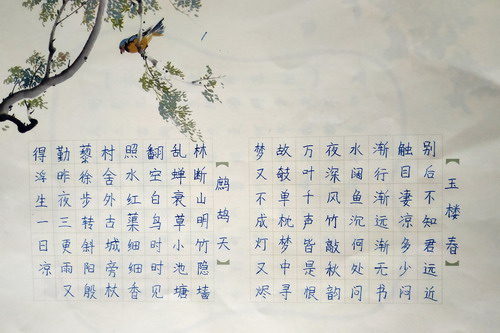 玉楼春
别后不知君远近
触目凄凉多少闷
渐行渐远渐无书
水阔鱼沉何处问
夜深风竹敲秋韵
万叶千声皆是恨
故欹单枕梦中寻
梦又不成灯又烬
鹧鸪天
林断山明竹隐墙
乱蝉衰草小池塘
翻空白鸟时时见
照水红蕖细细香
村舍外古城旁杖
藜徐步转斜阳殷
勤昨夜三更雨又
得浮生一日凉